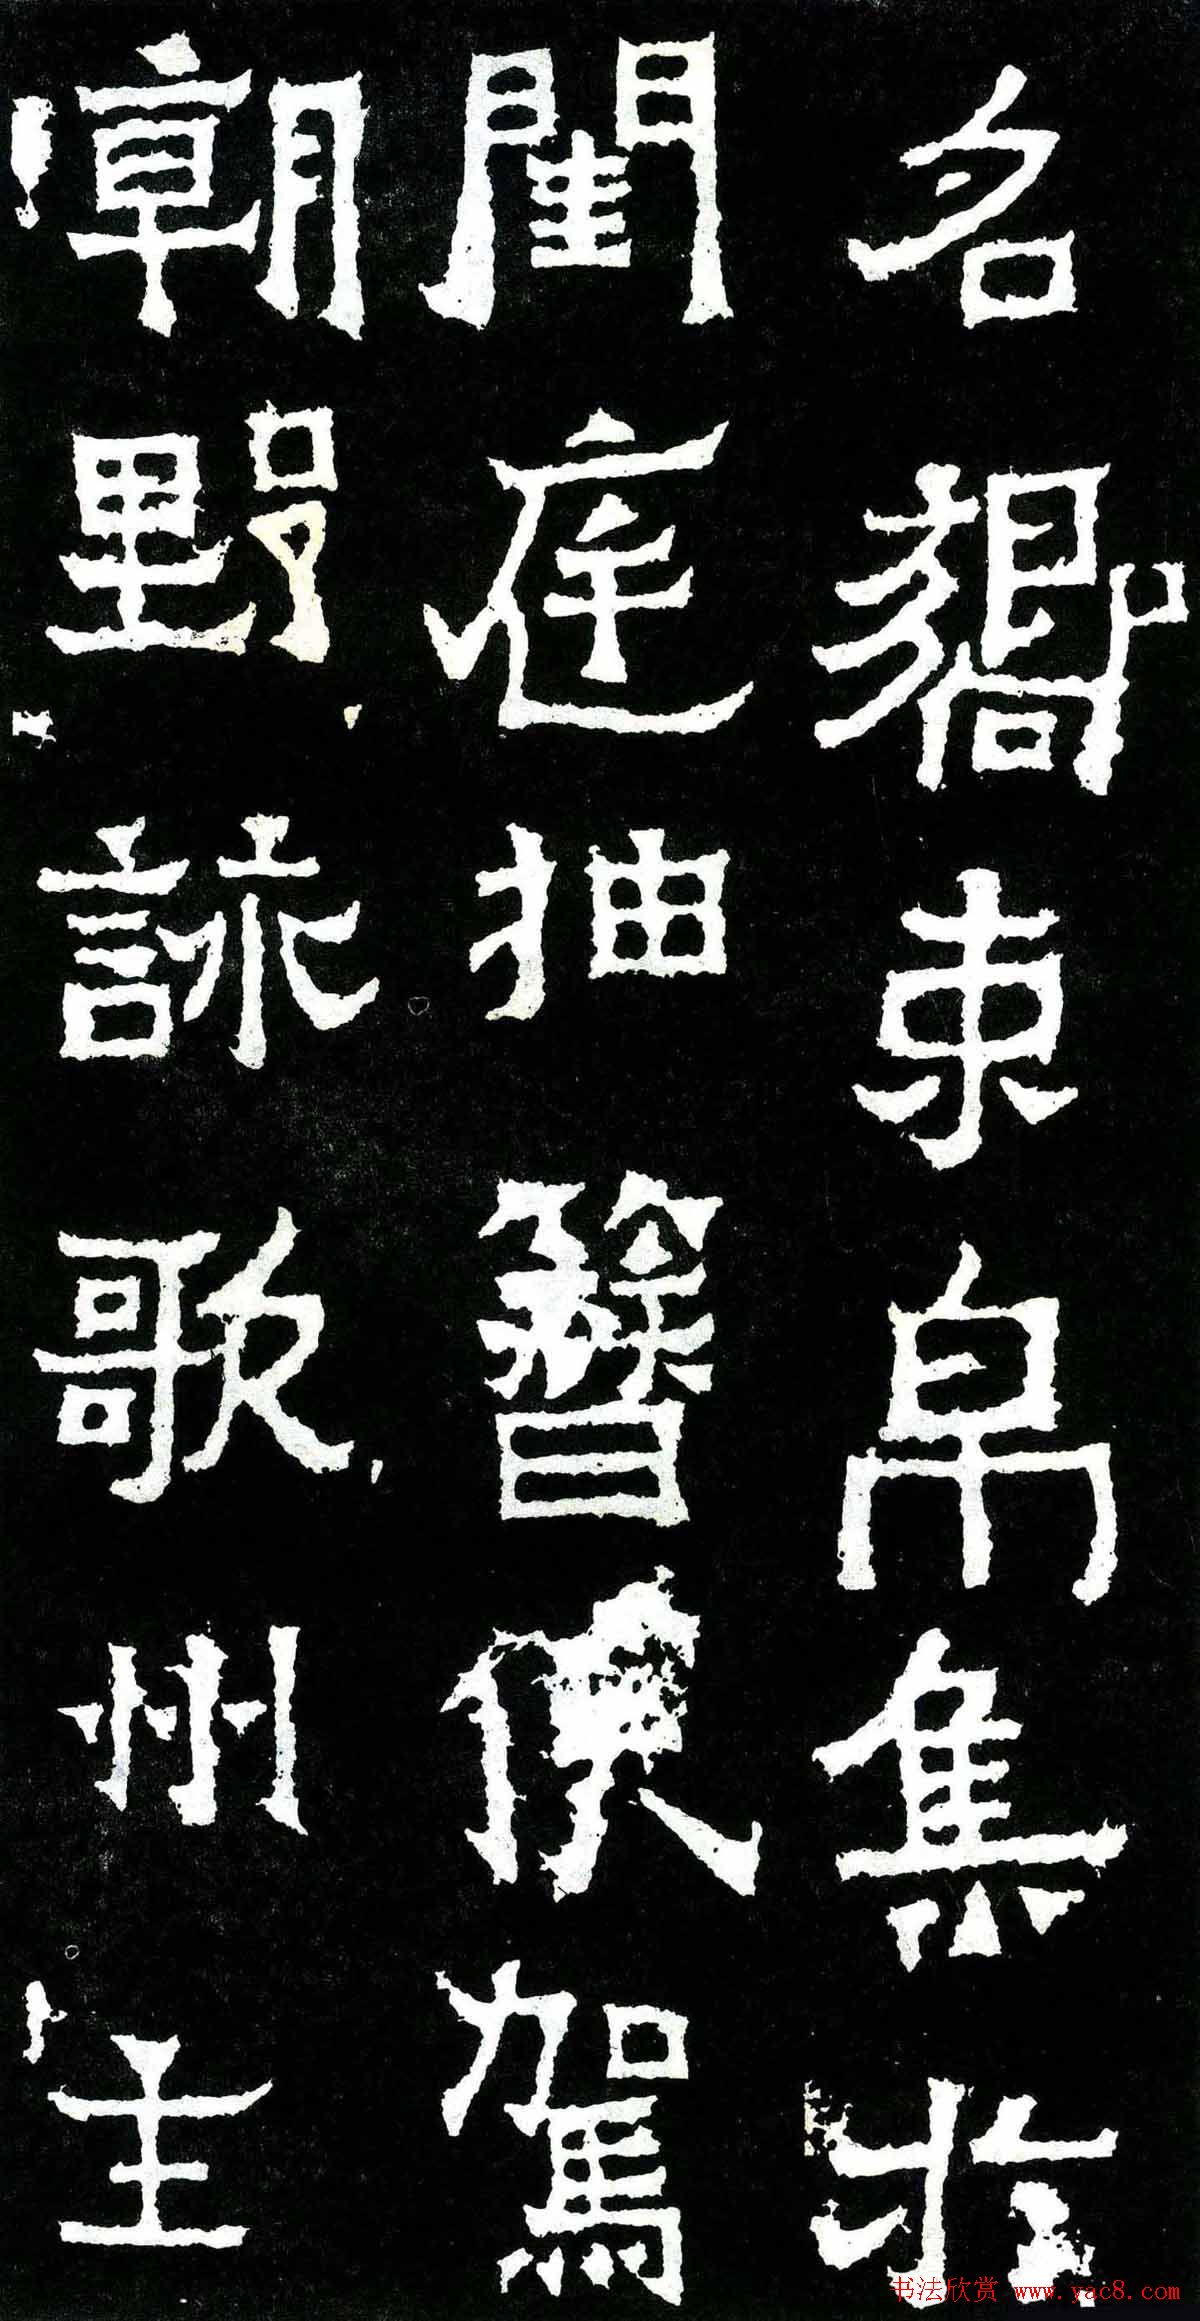 名嚮束帛集於
閨庭抽簪便駕
朝野詠歌州主
书法欣赏 www.yac8.com